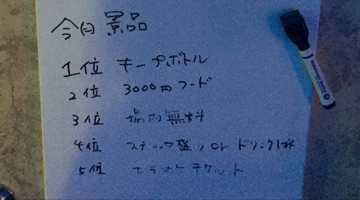 今月 景品
1位 キープボトル
2位 3000円フード
3位 場内無料
4位 スナック盛り or ドリンク1杯
5位 チケット